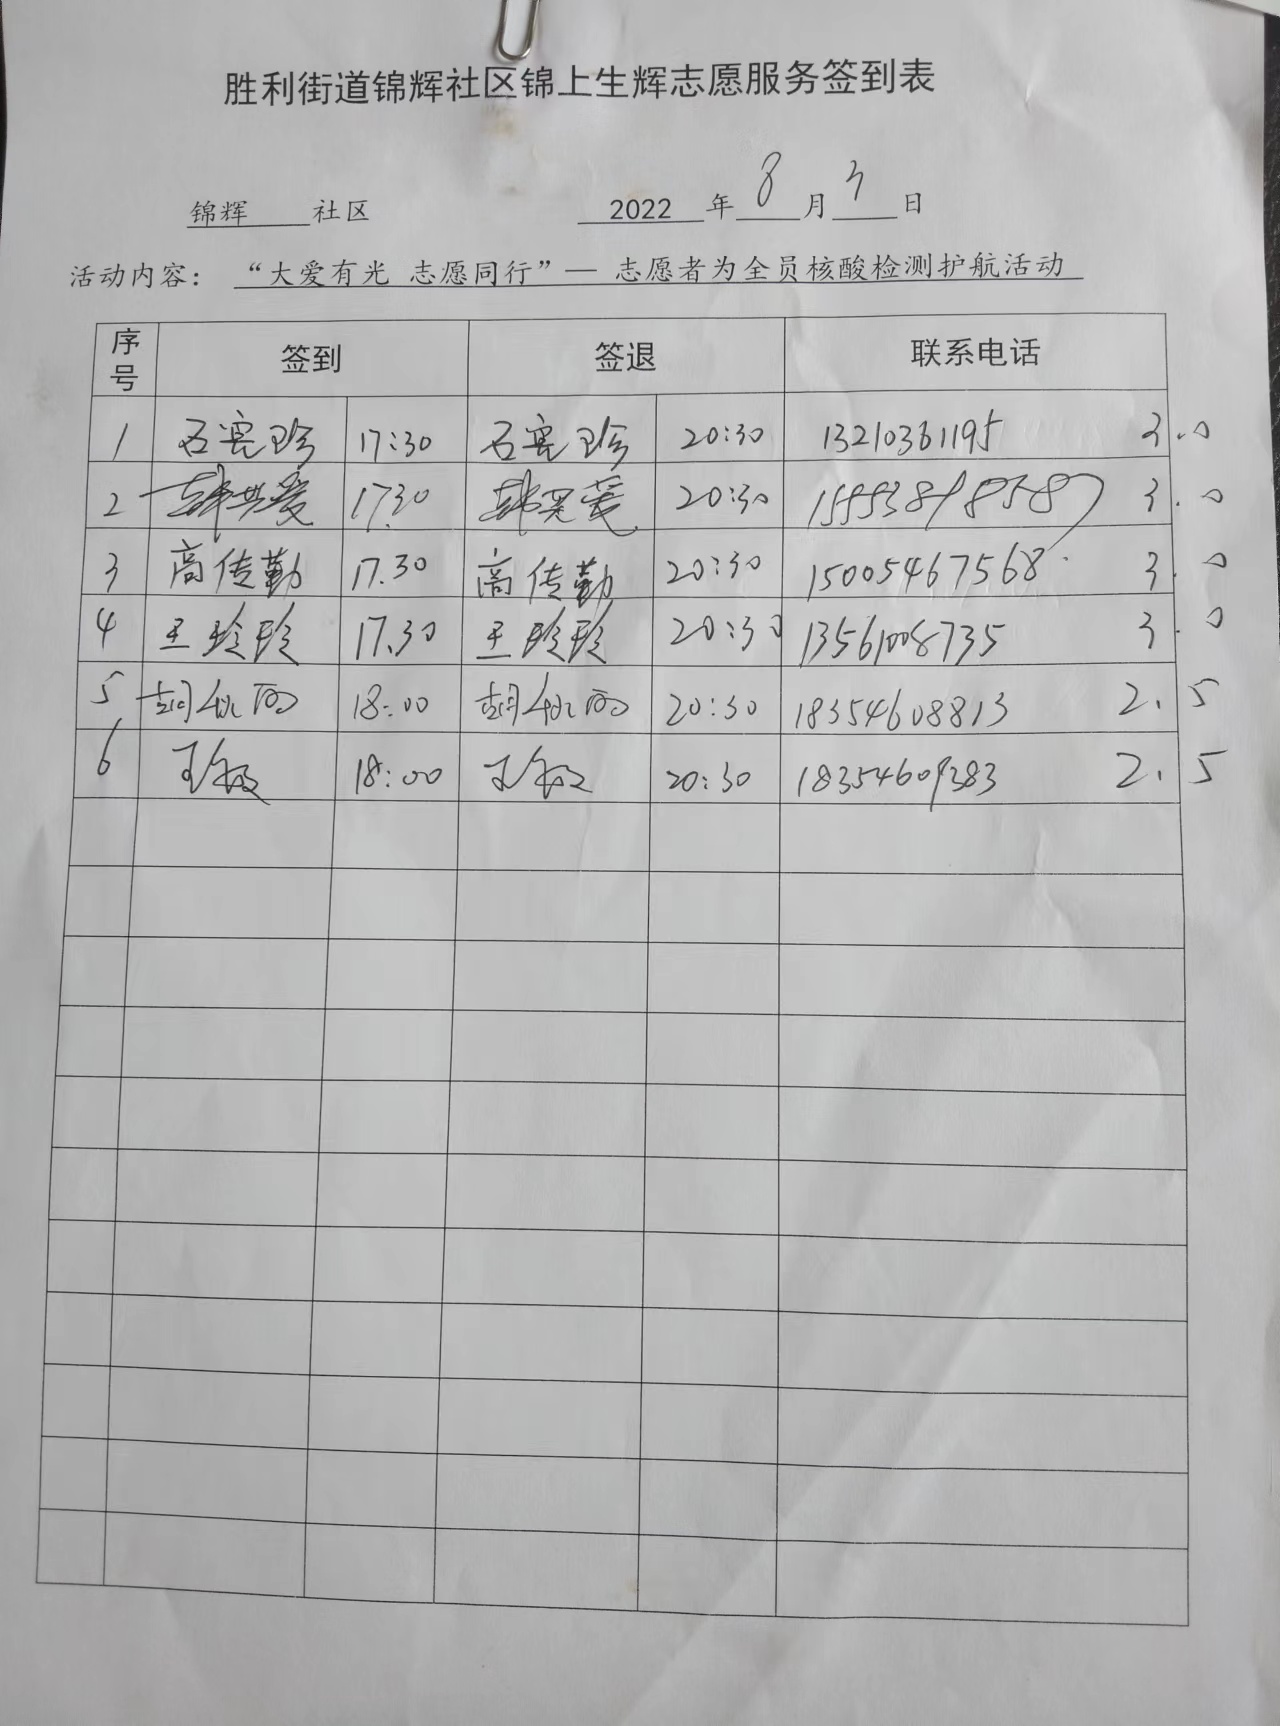 胜利街道锦辉社区锦上生辉志愿服务签到表
锦辉 社区 2022 年 8 月 3 日
活动内容： “大爱有光 志愿同行”— 志愿者为全员核酸检测护航活动
序号 签到 签退 联系电话
1 石宪珍 17:30 石宪珍 20:30 13210361195 3.0
2 17.30 20:30 3.0
3 高传勤 17.30 高传勤 20:30 15005467568 3.0
4 王玲玲 17.30 王玲玲 20:30 13561008735 3.0
5 胡秋雨 18:00 胡秋雨 20:30 18354608813 2.5
6 王敏 18:00 王敏 20:30 18354609383 2.5